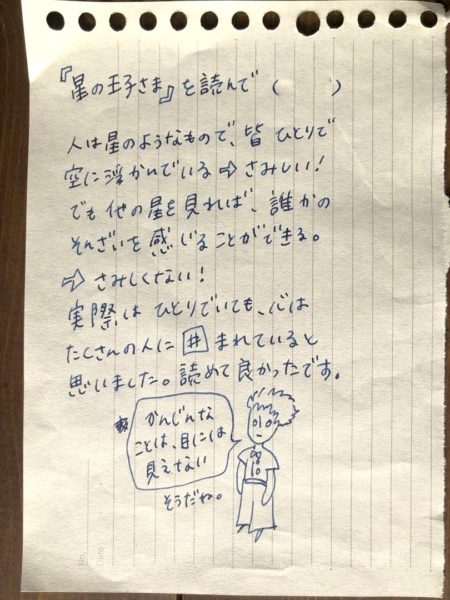 『星の王子さま』を読んで(　　)
人は星のようなもので、皆ひとりで
空に浮かんでいる⇨さみしい!
でも他の星を見れば、誰かの
そんざいを感じることができる。
⇨さみしくない!
実際はひとりでいても、心は
たくさんの人に囲まれていると
思いました。読めて良かったです。
かんじんな
ことは、目には
見えない
そうだね。
No.
Date